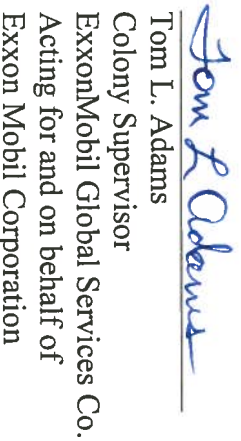 Tom L Adams
Tom L. Adams
Colony Supervisor
ExxonMobil Global Services Co.
Acting for and on behalf of
Exxon Mobil Corporation